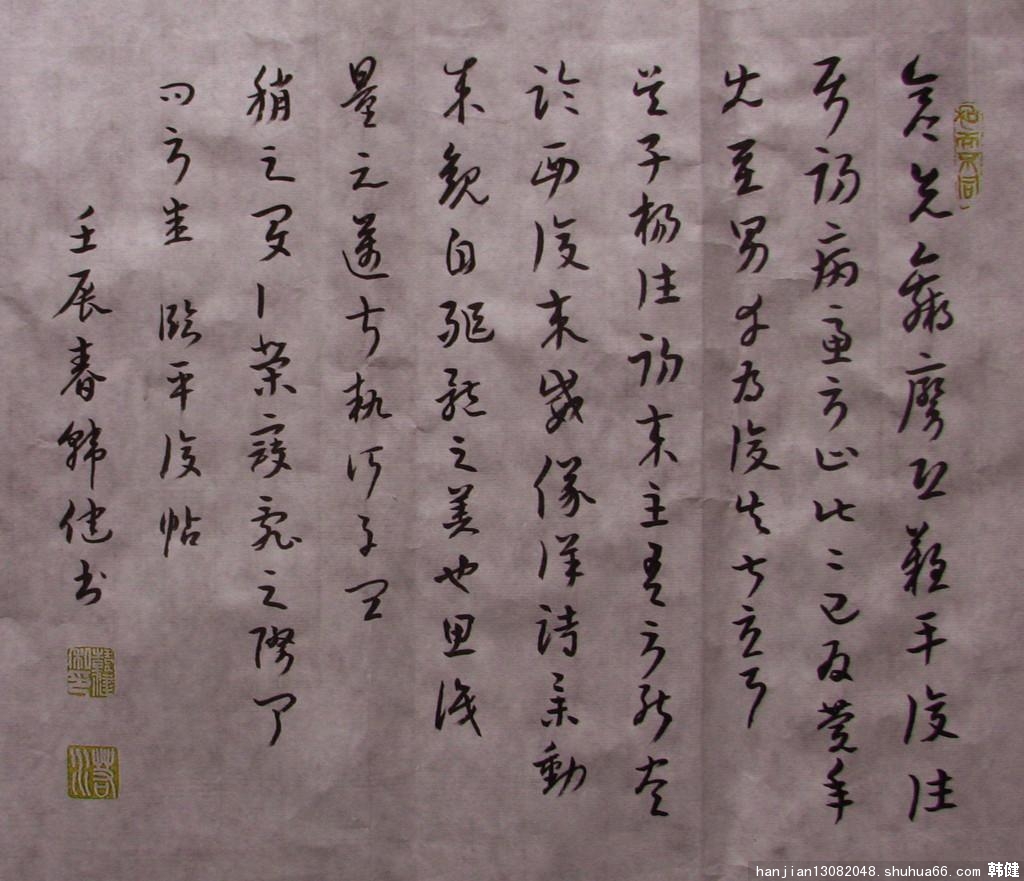 彦先羸瘵恐難平復往
屬初病慮不止此二已為慶承
使唯男幸為復失前憂耳
吳子楊往初來主吾不能盡
臨西復來威儀詳跱舉動
成觀自軀體之美也思識
量之邁前執所恒宜
稱之夏伯榮寇亂之際聞
問不悉 臨平復帖
壬辰春韓健書
和而不同
hanjian13082048.shuhua66.com 韩健